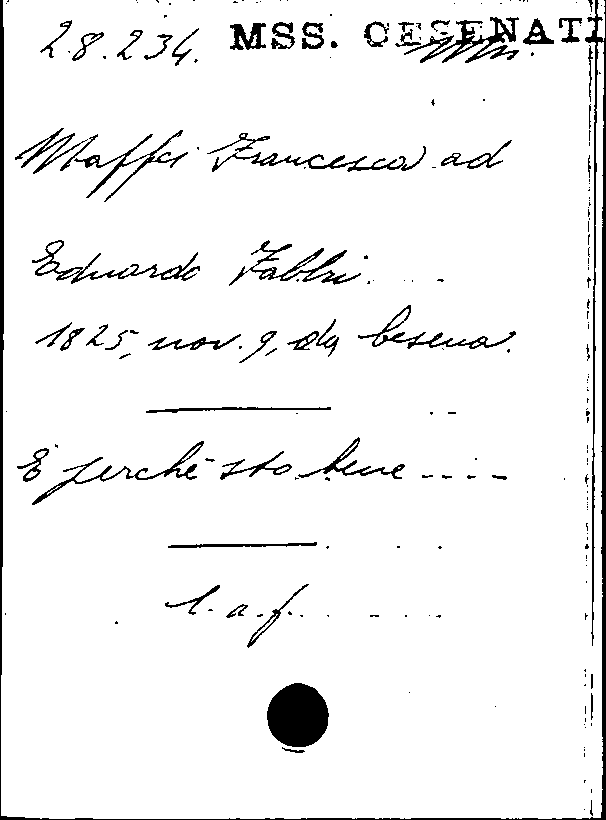 28.234. MSS. CESENATI
Maffei Francesca ad
Eduardo Fabbri.
1825, nov. 9, da Cesena.
E perchè sto bene ....
l. a. f.